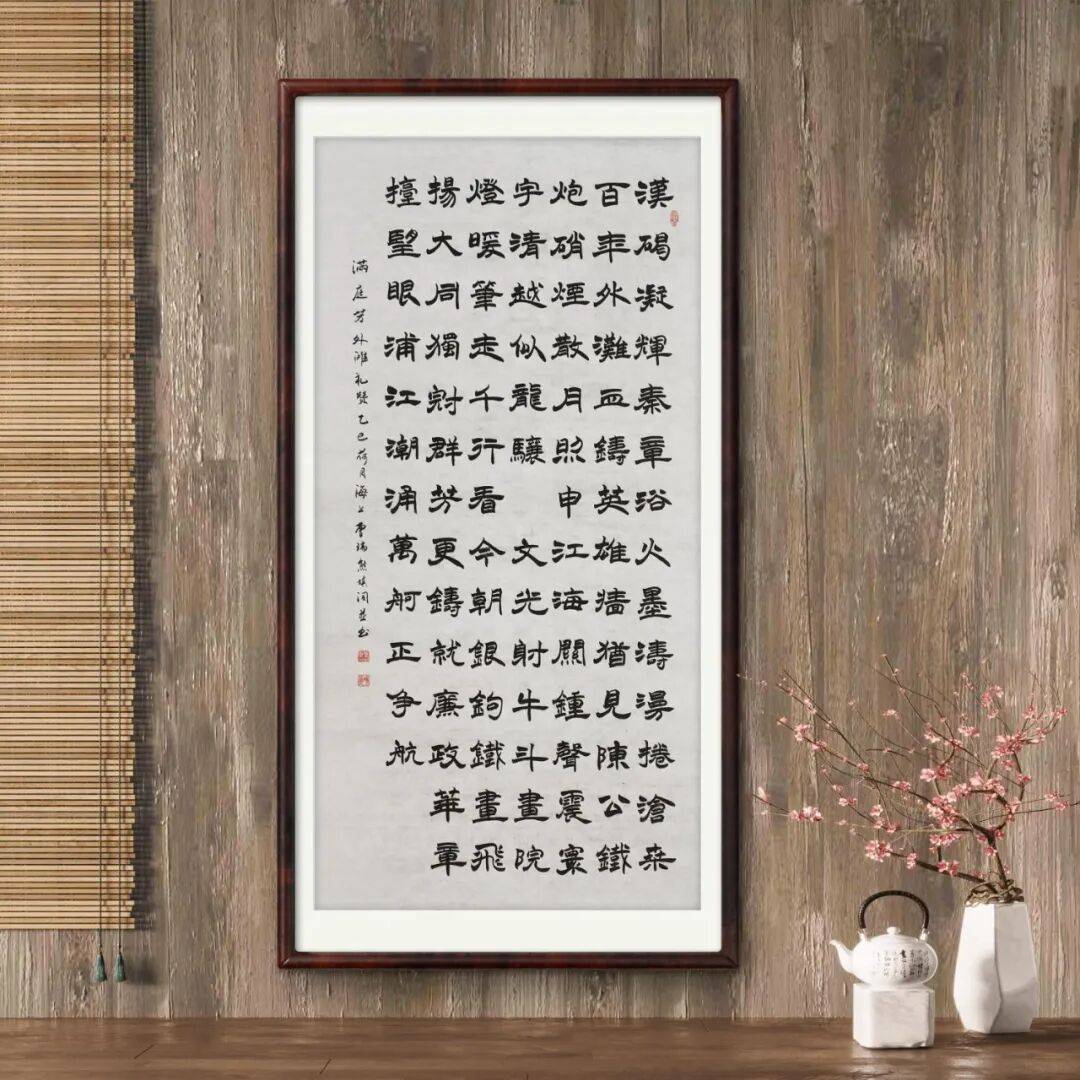 漢碣凝輝秦章浴火墨濤漫捲滄桒
百年外灘血鑄英雄墻猶見陳公鐵
炮硝煙散月照申江海關鍾聲震寰
宇清越似龍驤 文光射牛斗畫院
燈暖筆走千行看今朝銀鉤鐵畫飛
揚大同獨冠群芳更鑄就廉政華章
擡朢眼浦江潮涌萬舸正爭航
满庭芳外滩礼赞乙巳荷月海上曹瑞熊填词并书